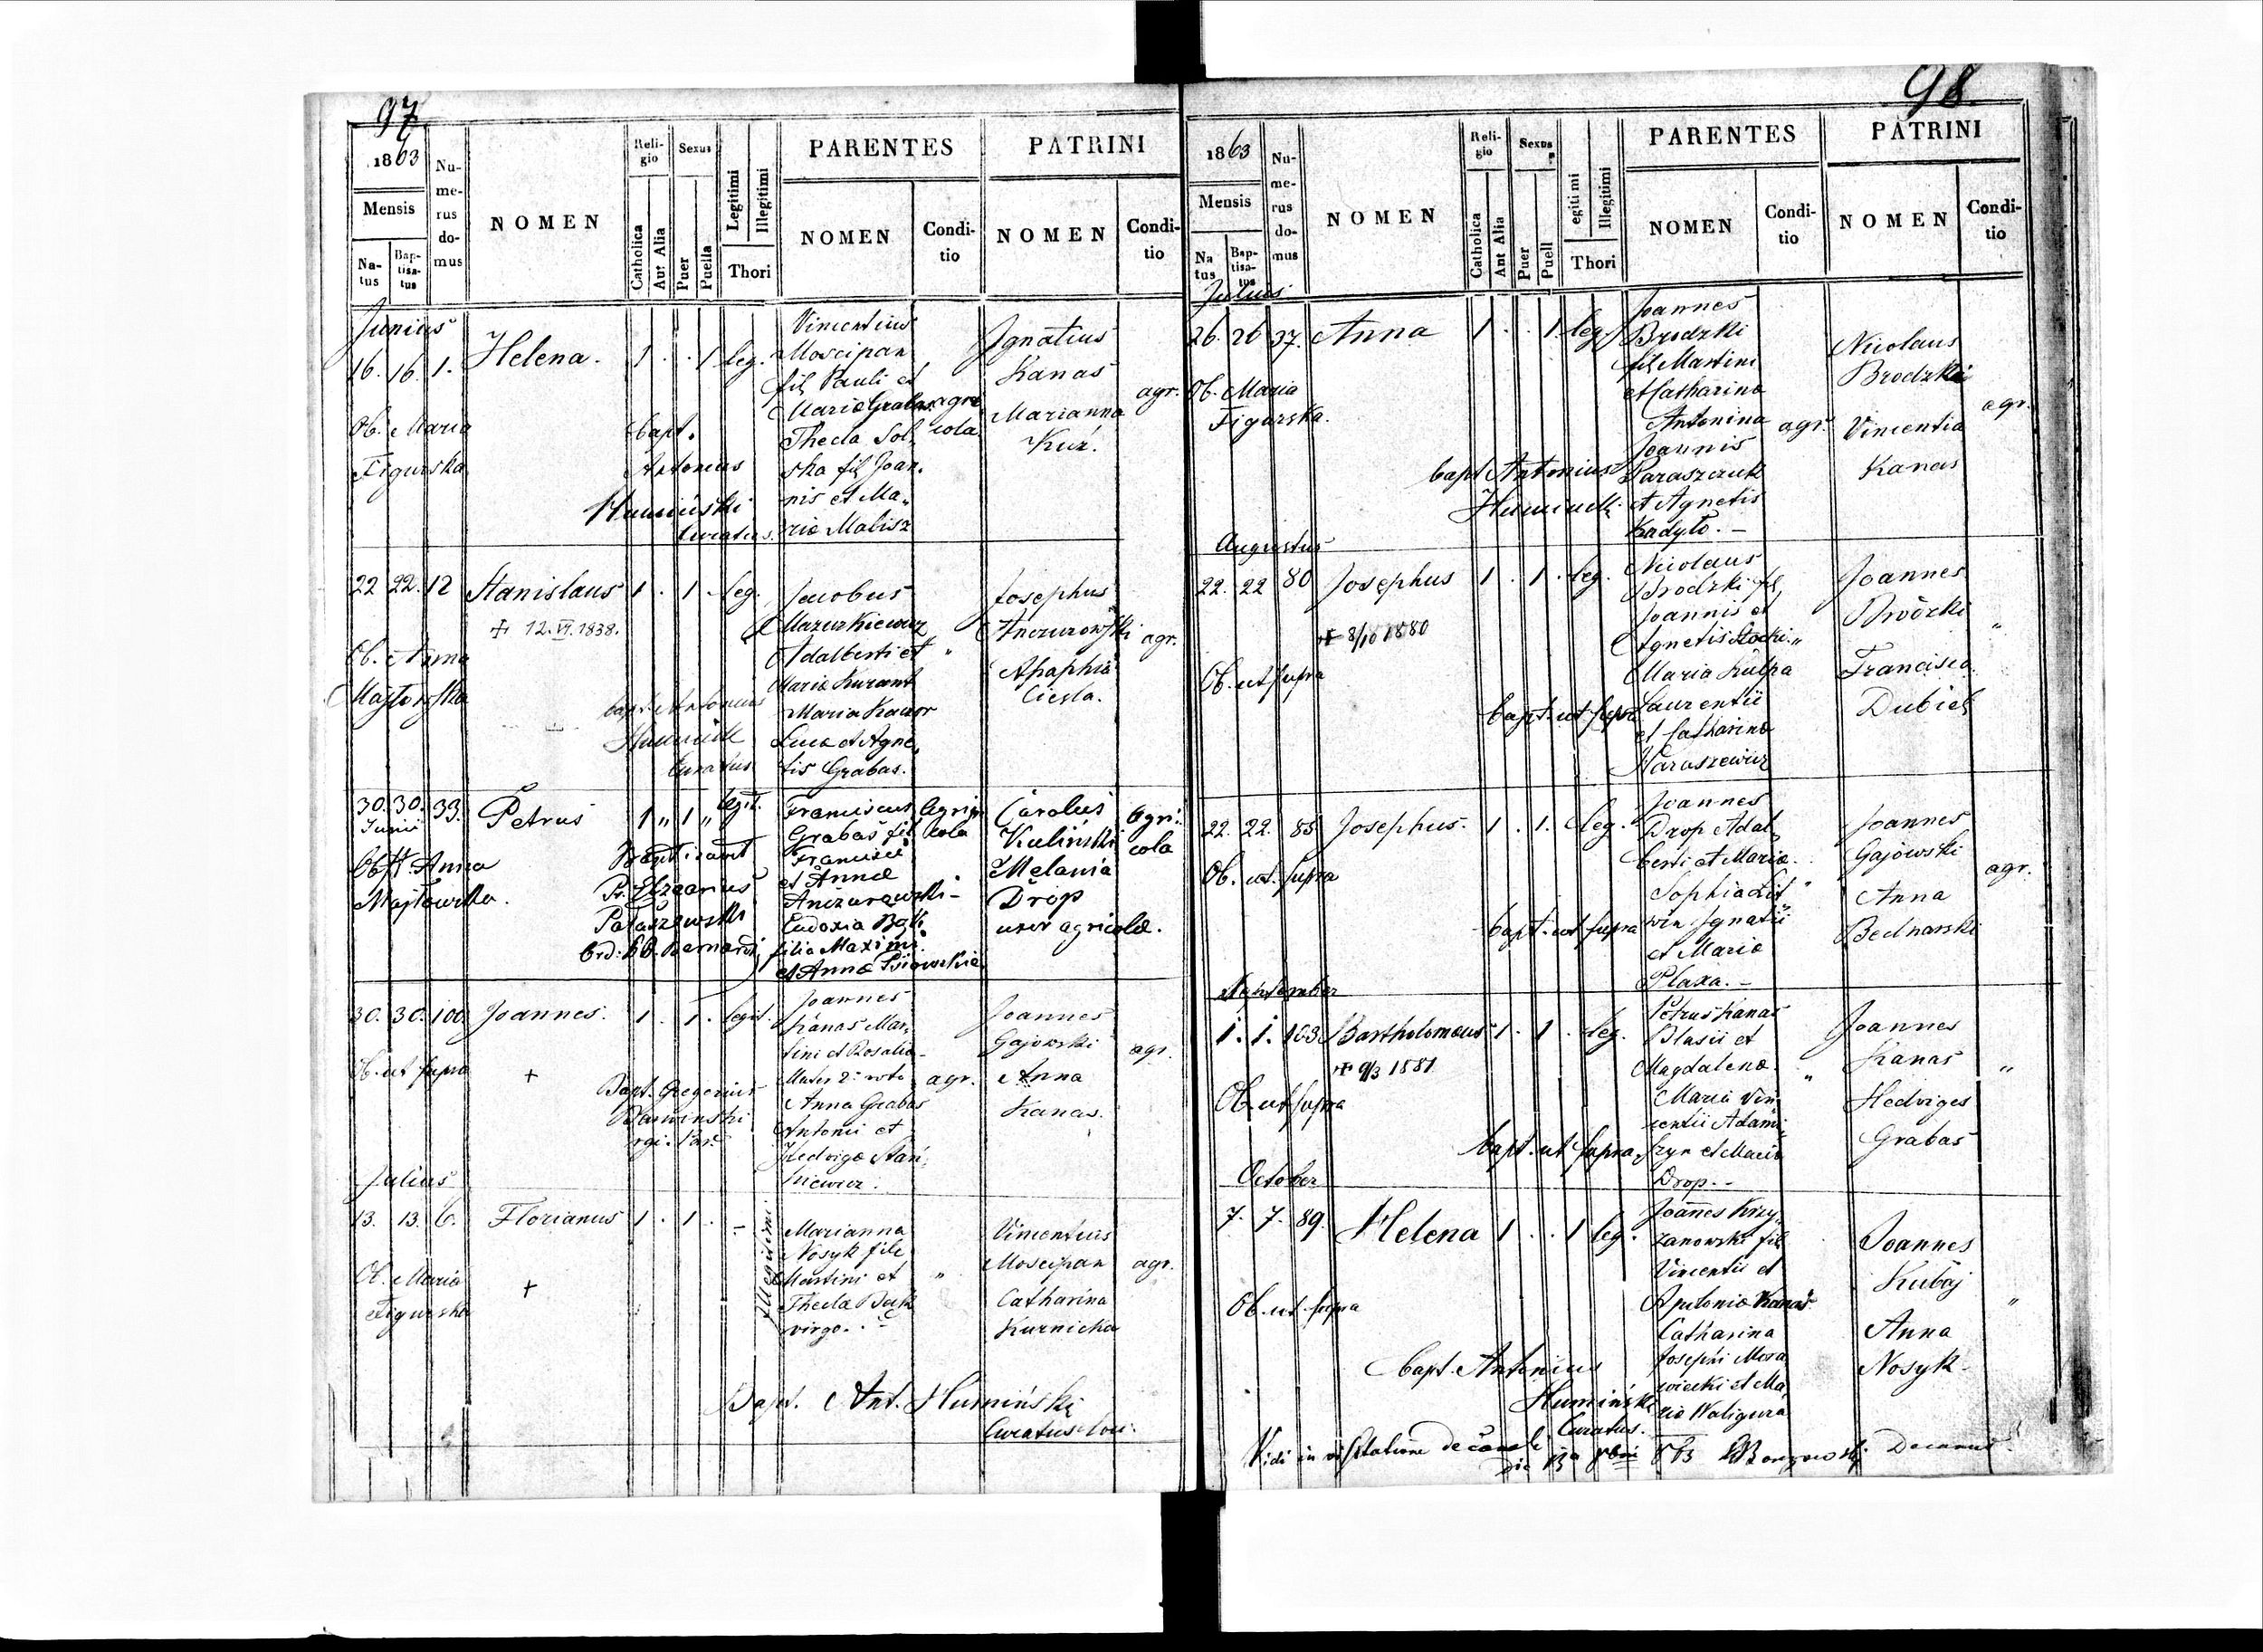 97
1863
Numerus domus
NOMEN
Religio
Sexus
Legitimi
Illegitimi
PARENTES
PATRINI
Mensis
Catholica
Aut Alia
Puer
Puella
Thori
NOMEN
Conditio
NOMEN
Conditio
Natus
Baptisatus
Junius
16. 16. 1. Helena. 1 . . 1 leg.
Ob. Maria
Figurska
bapt.
Antonius
Humiński
Curatus.
Vincentius
Moscipan
fil Pauli et
Mariæ Grabas
Thecla Sol
ska fil Joan.
nis et Ma„
riæ Malisz
agri
cola
Ignatius
Kanas
Marianna
Kuź.
agr.
22 22. 12 Stanislaus 1 . 1 . leg.
+ 12. VI. 1838.
Ob. Anna
bapt. Antonius
Curatus
Jacobus
Mazurkiewicz
Adalberti et
Mariæ Kurant
Maria
Lucæ et Agne„
tis Grabas.
"
Josephus
Apaphia
Ciesla.
agr.
30. 30. 33. Petrus 1 „ 1 „ legit.
Junii
Obst. Anna
Majtowska.
Baptisavit
Franciscus
Grabas fil
Francisci
et Annæ
Eudoxia
filia Maximi
et Annæ
Agri
cola
Carolus
Kulinski
Melania
Drop
uxor agricolæ.
Agri:
cola
30. 30. 100 Joannes. 1 . 1 . legit.
Ob. ut supra
+
Bapt. Gregorius
Joannes
Kanas Mar„
tini et Rosaliæ
Mater 2° voto
Anna Grabas
Antonii et
Hedvigæ
agr.
Joannes
Gajowski
Anna
Kanas.
agr.
Julius
13. 13. 6. Florianus 1 . 1 . -
Illegitimi
Ob. Maria
Figurska
+
Marianna
Nosyk file
Martini et
Thecla
virgo.
"
Vincentius
Moscipan
Catharina
Kurnicka
agr.
Bapt. Ant. Humiński
Curatus loci.
98
1863
Numerus domus
NOMEN
Religio
Sexus
egiti mi
Illegitimi
PARENTES
PATRINI
Mensis
Catholica
Ant Alia
Puer
Puell
Thori
NOMEN
Conditio
NOMEN
Conditio
Natus
Baptisatus
Julius
26. 26 37. Anna 1 . . 1. leg.
Ob. Maria
Figurska.
bapt Antonius
Joannes
Brodzki
fil Martini
et Catharinæ
Antonina
Joannis
Paraszczuk
et Agnetis
Kadyło. -
agr.
Nicolaus
Brodzki
Vincentia
Kanas
agr.
Augustus
22. 22 80 Josephus 1 . 1 . leg.
+ 8/10 1880
Ob. ut supra
bapt. ut supra
Nicolaus
Brodzki fil
Joannis et
Agnetis
Maria Kulpa
Laurentii
et Catharinæ
"
Joannes
Francisca
Dubiel
"
22. 22. 85 Josephus. 1 . 1. . leg.
Ob. ut. supra
bapt. ut supra
Joannes
Drop Adal
berti et Mariæ.
Sophia Lit
win Ignatii
et Mariæ
Płaxa. -
"
Joannes
Gajowski
Anna
Bednarski
agr.
September
1. 1. 103 Bartholomæus 1 . 1 . leg.
+ 9/3 1881
Ob. ut supra
bapt. ut supra.
Petrus Kanas
Blasii et
Magdalenæ.
Maria Vin„
centii Adami„
szyn et Mariæ
Drop. -
"
Joannes
Kanas
Hedviges
Grabas
"
October
7. 7. 89. Helena 1 . . 1 leg.
Ob. ut. supra
bapt. Antonius
Humiński
Curatus.
Joannes Krzy„
zanowski fil
Vincentii et
Apoloniæ Kanas
Catharina
Josephi Mora
wiecki et Ma„
riæ Waligura
Joannes
Kubaj
Anna
Nosyk
"
Vidi in visitatione decanali
die 13a 8bri 863 Decanus